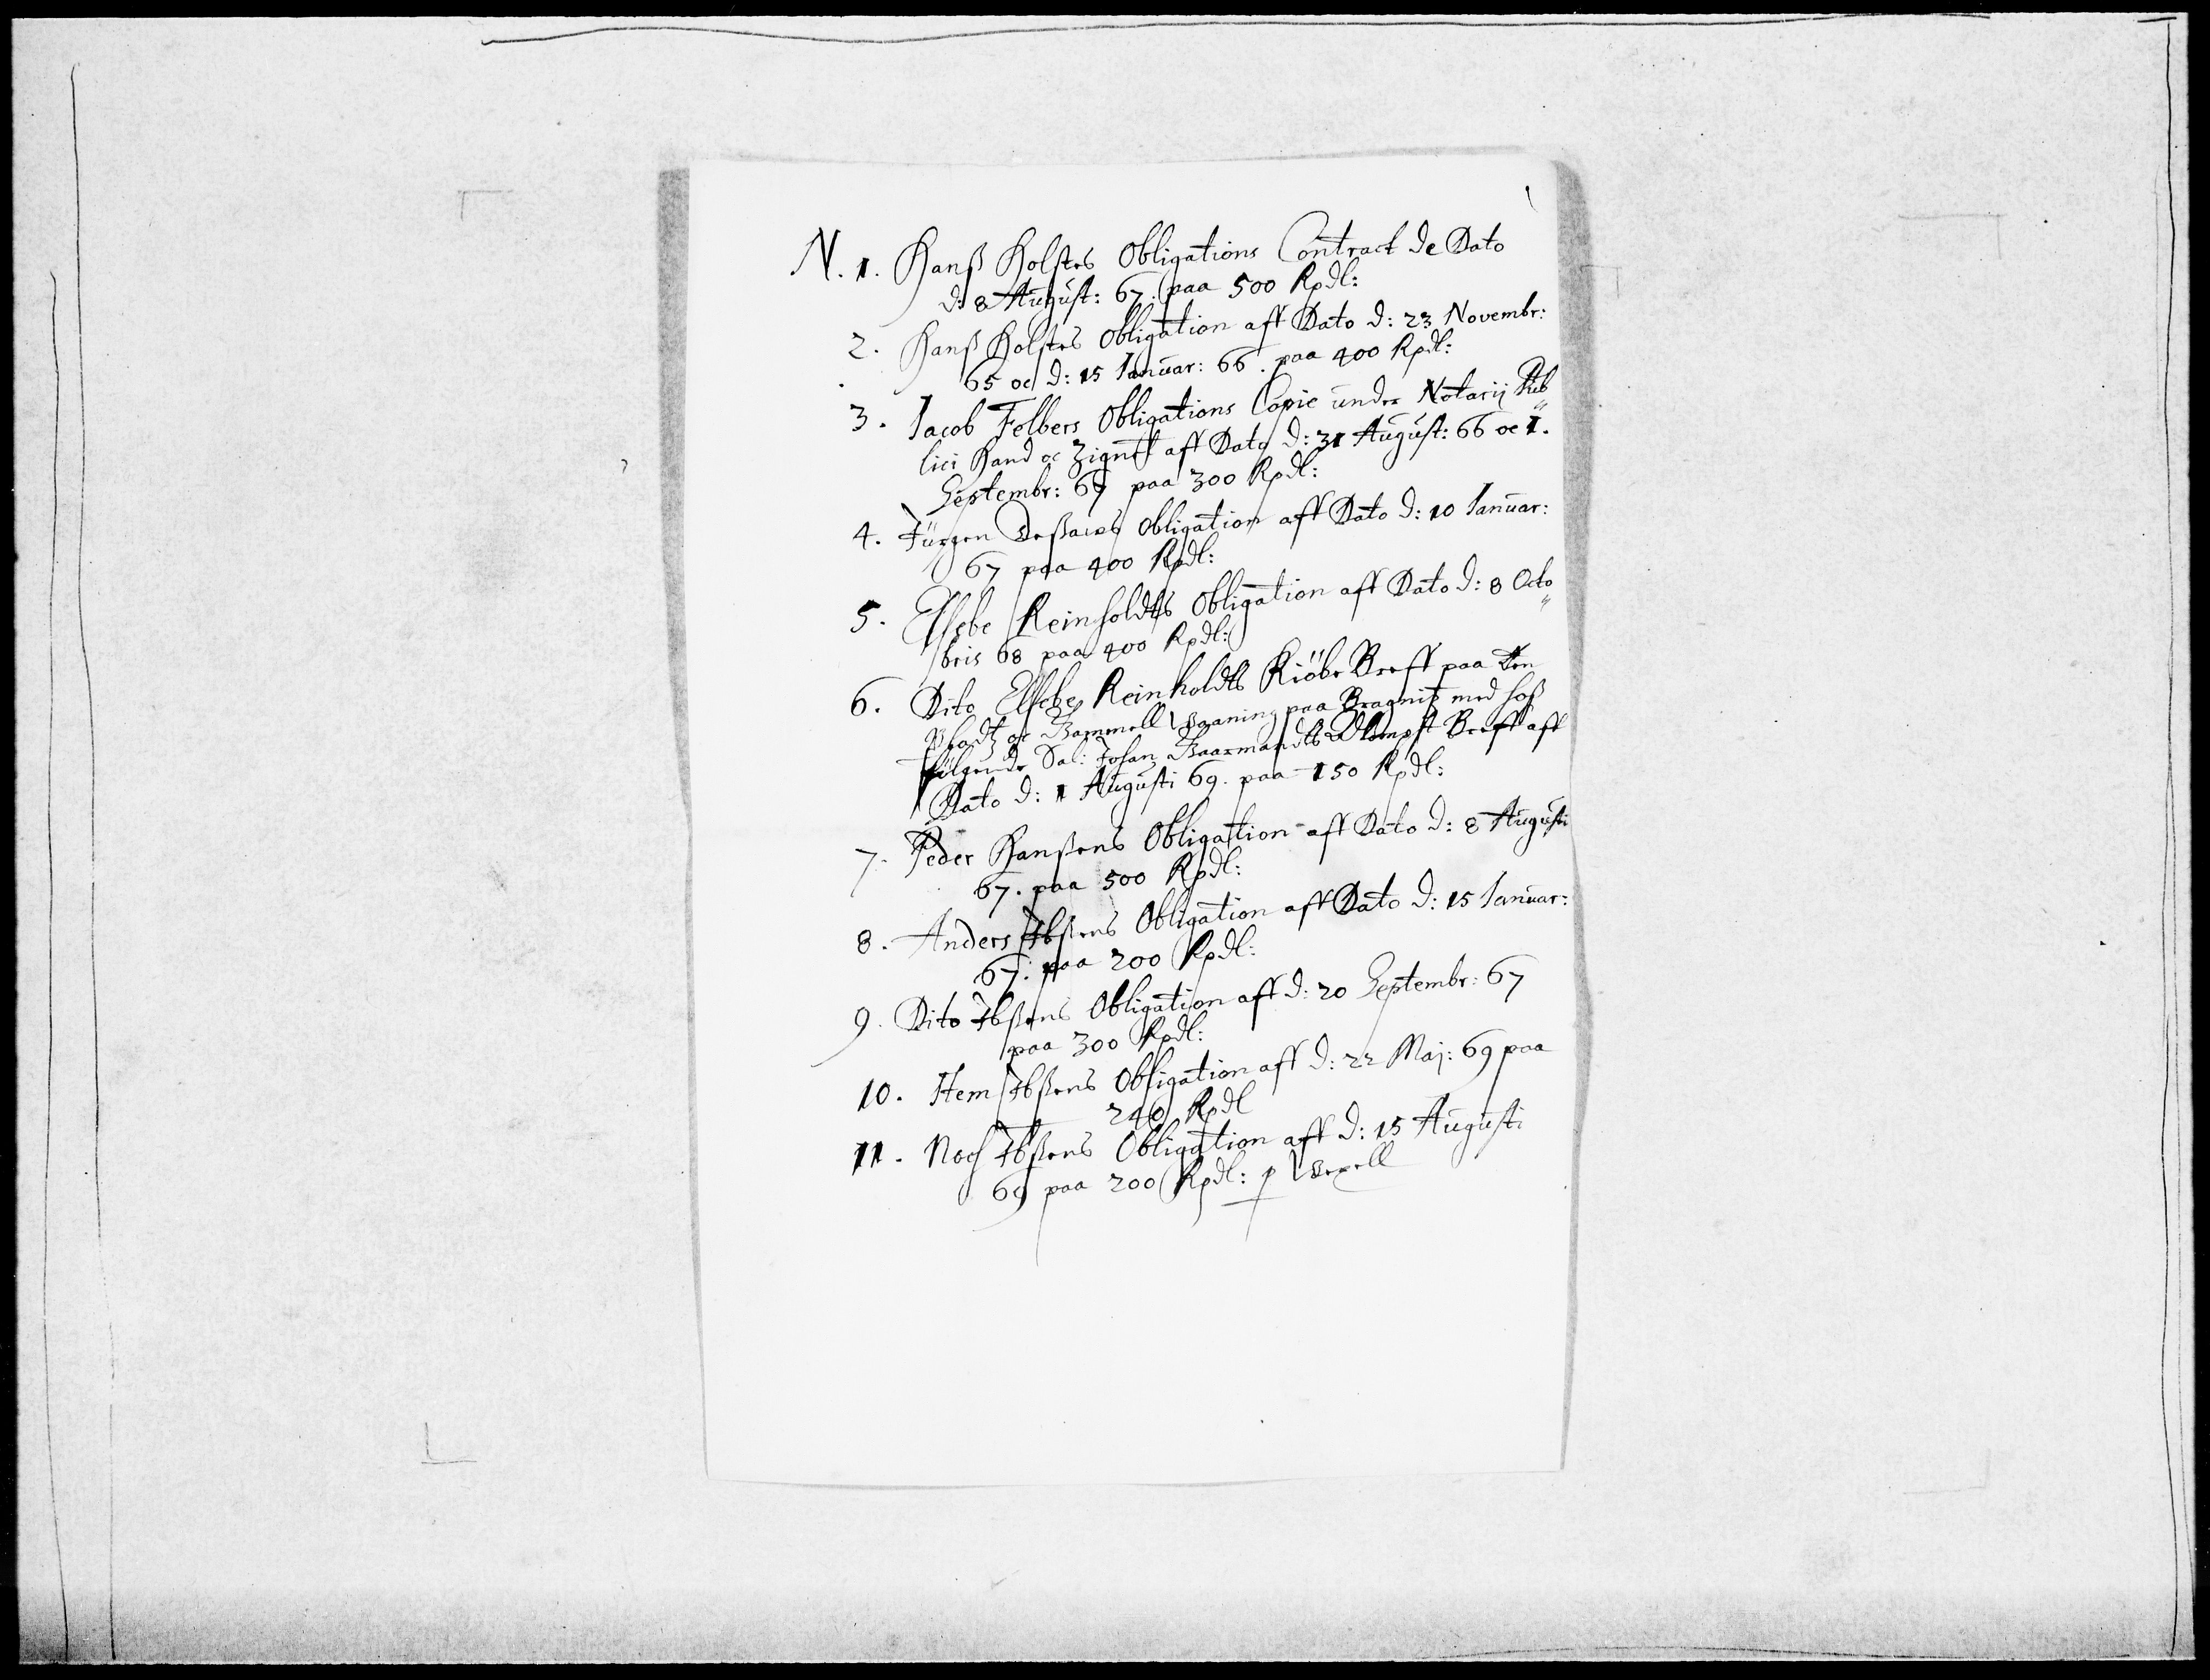 N. 1. Hanß Holstes Obligations Contract de Dato
d: 8 August: 67. paa 500 Rpdl:
2. Hanß Holstes Obligation aff Dato d: 23 Novembr:
65 oc d: 15 Januar: 66. paa 400 Rpdl:
3. Jacob Felbers Obligations Copie under Notarij Pub„
lici Hand oc Zignet aff Dato d: 31 August: 66 oc 1.
Septembr: 67 paa 300 Rpdl:
4. Jürgen Obligation aff Dato d: 10 Januar:
67 paa 400 Rpdl:
5. Elsebe Reinholdts Obligation aff Dato d: 8 Octo„
bris 68 paa 400 Rpdl:
6. Dito Elsebe Reinholdts Kiöbe Breff paa Een
Pladtz oc Gammell Vaaning paa Bragnitz med hoß
fölgende Sal: Johan Breff aff
Dato d: 1 Augusti 69. paa 150 Rpdl:
7. Peder Hanßens Obligation aff Dato d: 8 Augusti
67. paa 500 Rpdl:
8. Anders Ibßens Obligation aff Dato d: 15 Januar:
67: paa 200 Rpdl:
9. Dito Ibßens Obligation aff d: 20 Septembr: 67
paa 300 Rpdl:
10. Item Ibßens Obligation aff d: 22 Maj: 69 paa
240 Rpdl
11. Noch Ibßens Obligation aff d: 15 Augusti
69 paa 200 Rpdl: p Wexell